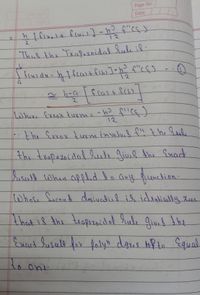 = h/2 [f(x₀) + f(x₁)] - h³/12 f''(ξ)
Thus the Trapezoidal Rule is
∫ f(x) dx = h/2 [f(a) + f(b)] - h³/12 f''(ξ) - ①
≅ b-a/2 [f(a) + f(b)]
Where Error term = -h³/12 f''(ξ)
∴ the Error term involves f'' the Rule
The trapezoidal Rule gives the Exact
Result when applied to any function
Whose Second derivative is identically zero
that is the trapezoidal Rule gives the
Exact Result for polyⁿ degree upto Equal
to one